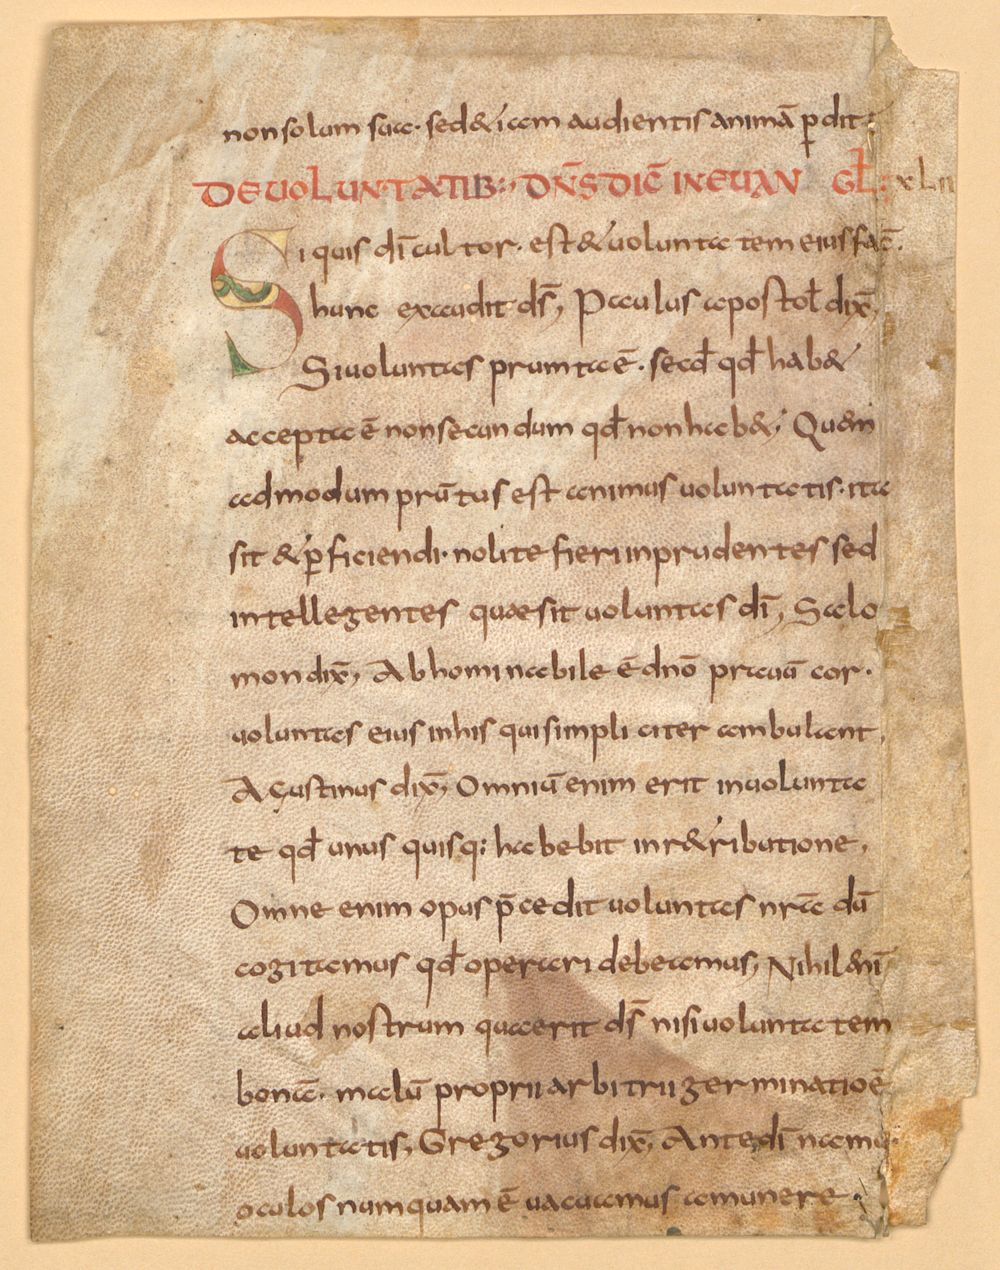 non solum suā. sed & iam audientis animā ꝑdit:
DE UOLUNTATIB: DN̄S DIC̄ IN EUAN GL̄: XLII
Si quis dī cultor. est & uoluntatem eius fac̄.
hunc exaudit ds̄, Paulus apostol̄ dix̄,
Si uoluntas prumta ē. secd̄ qd̄ hab&
accepta ē non secundum qd̄ non hab&, Quēm
admodum prūtus est animus uoluntatis. ita
sit & ꝑficiendi. nolite fieri inprudentes sed
intellegentes quae sit uoluntas dī, Salo
mon dix̄, Abhominabile ē dnō prauū cor.
uoluntas eius in his qui simpliciter ambulant,
Agustinus dix̄, Omniū enim erit in uolunta
te qd̄ unus quisq: habebit in r&ributione,
Omne enim opus p̄cedit uoluntas nrā dū
cogitamus qd̄ operari debeamus, Nihil enī
aliud nostrum quaerit ds̄ nisi uoluntatem
bonā. malū proprii arbitrii germinatioē
uoluntatis, Gregorius dix̄, Ante dī namq.
oculos numquam ē uacua manus a munere.